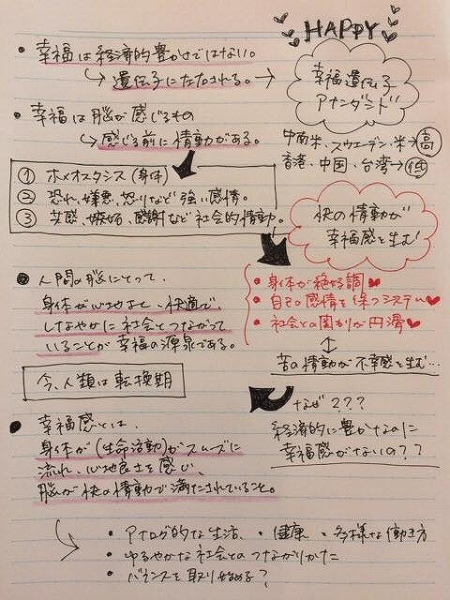 HAPPY
・幸福は経済的豊かさではない。
↳遺伝子に左右される。→
幸福遺伝子
アナンダミド
・幸福は脳が感じるもの
↳感じる前に情動がある。
中南米、スウェーデン、米→高
香港、中国、台湾→低
① ホメオスタシス(身体)
② 恐れ、嫌悪、怒りなど強い感情。
③ 共感、嫉妬、感謝など社会的情動。
快の情動が
幸福感を生む!
・人間の脳にとって、
身体が心地よく、快適で、
しなやかに社会とつながって
いることが幸福の源泉である。
・身体が絶好調
・自己の感情を保つシステム
・社会との関わりが円滑
↕
苦の情動が不幸感を生む…
今、人類は転換期
なぜ???
経済的に豊かなのに
幸福感がないの??
・幸福感とは、
身体が(生命活動)がスムーズに
流れ、心地良さを感じ、
脳が快の情動で満たされていること。
・アナログ的な生活、・健康 ・多様な働き方
・ゆるやかな社会とのつながりかた
・バランスを取り始める?